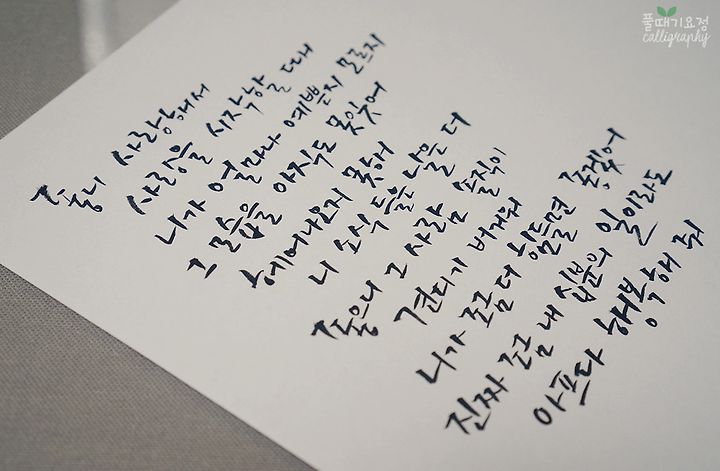 풀때기요정
calligraphy
좋니 사랑해서
사랑을 시작할 때
니가 얼마나 예쁜지 모르지
그 모습을 아직도 못잊어
헤어나오지 못해
니 소식 들은 날은 더
좋으니 그 사람 솔직히
견디기 버거워
니가 조금 더 힘들면 좋겠어
진짜 조금 내 십분의 일이라도
아프다 행복해줘